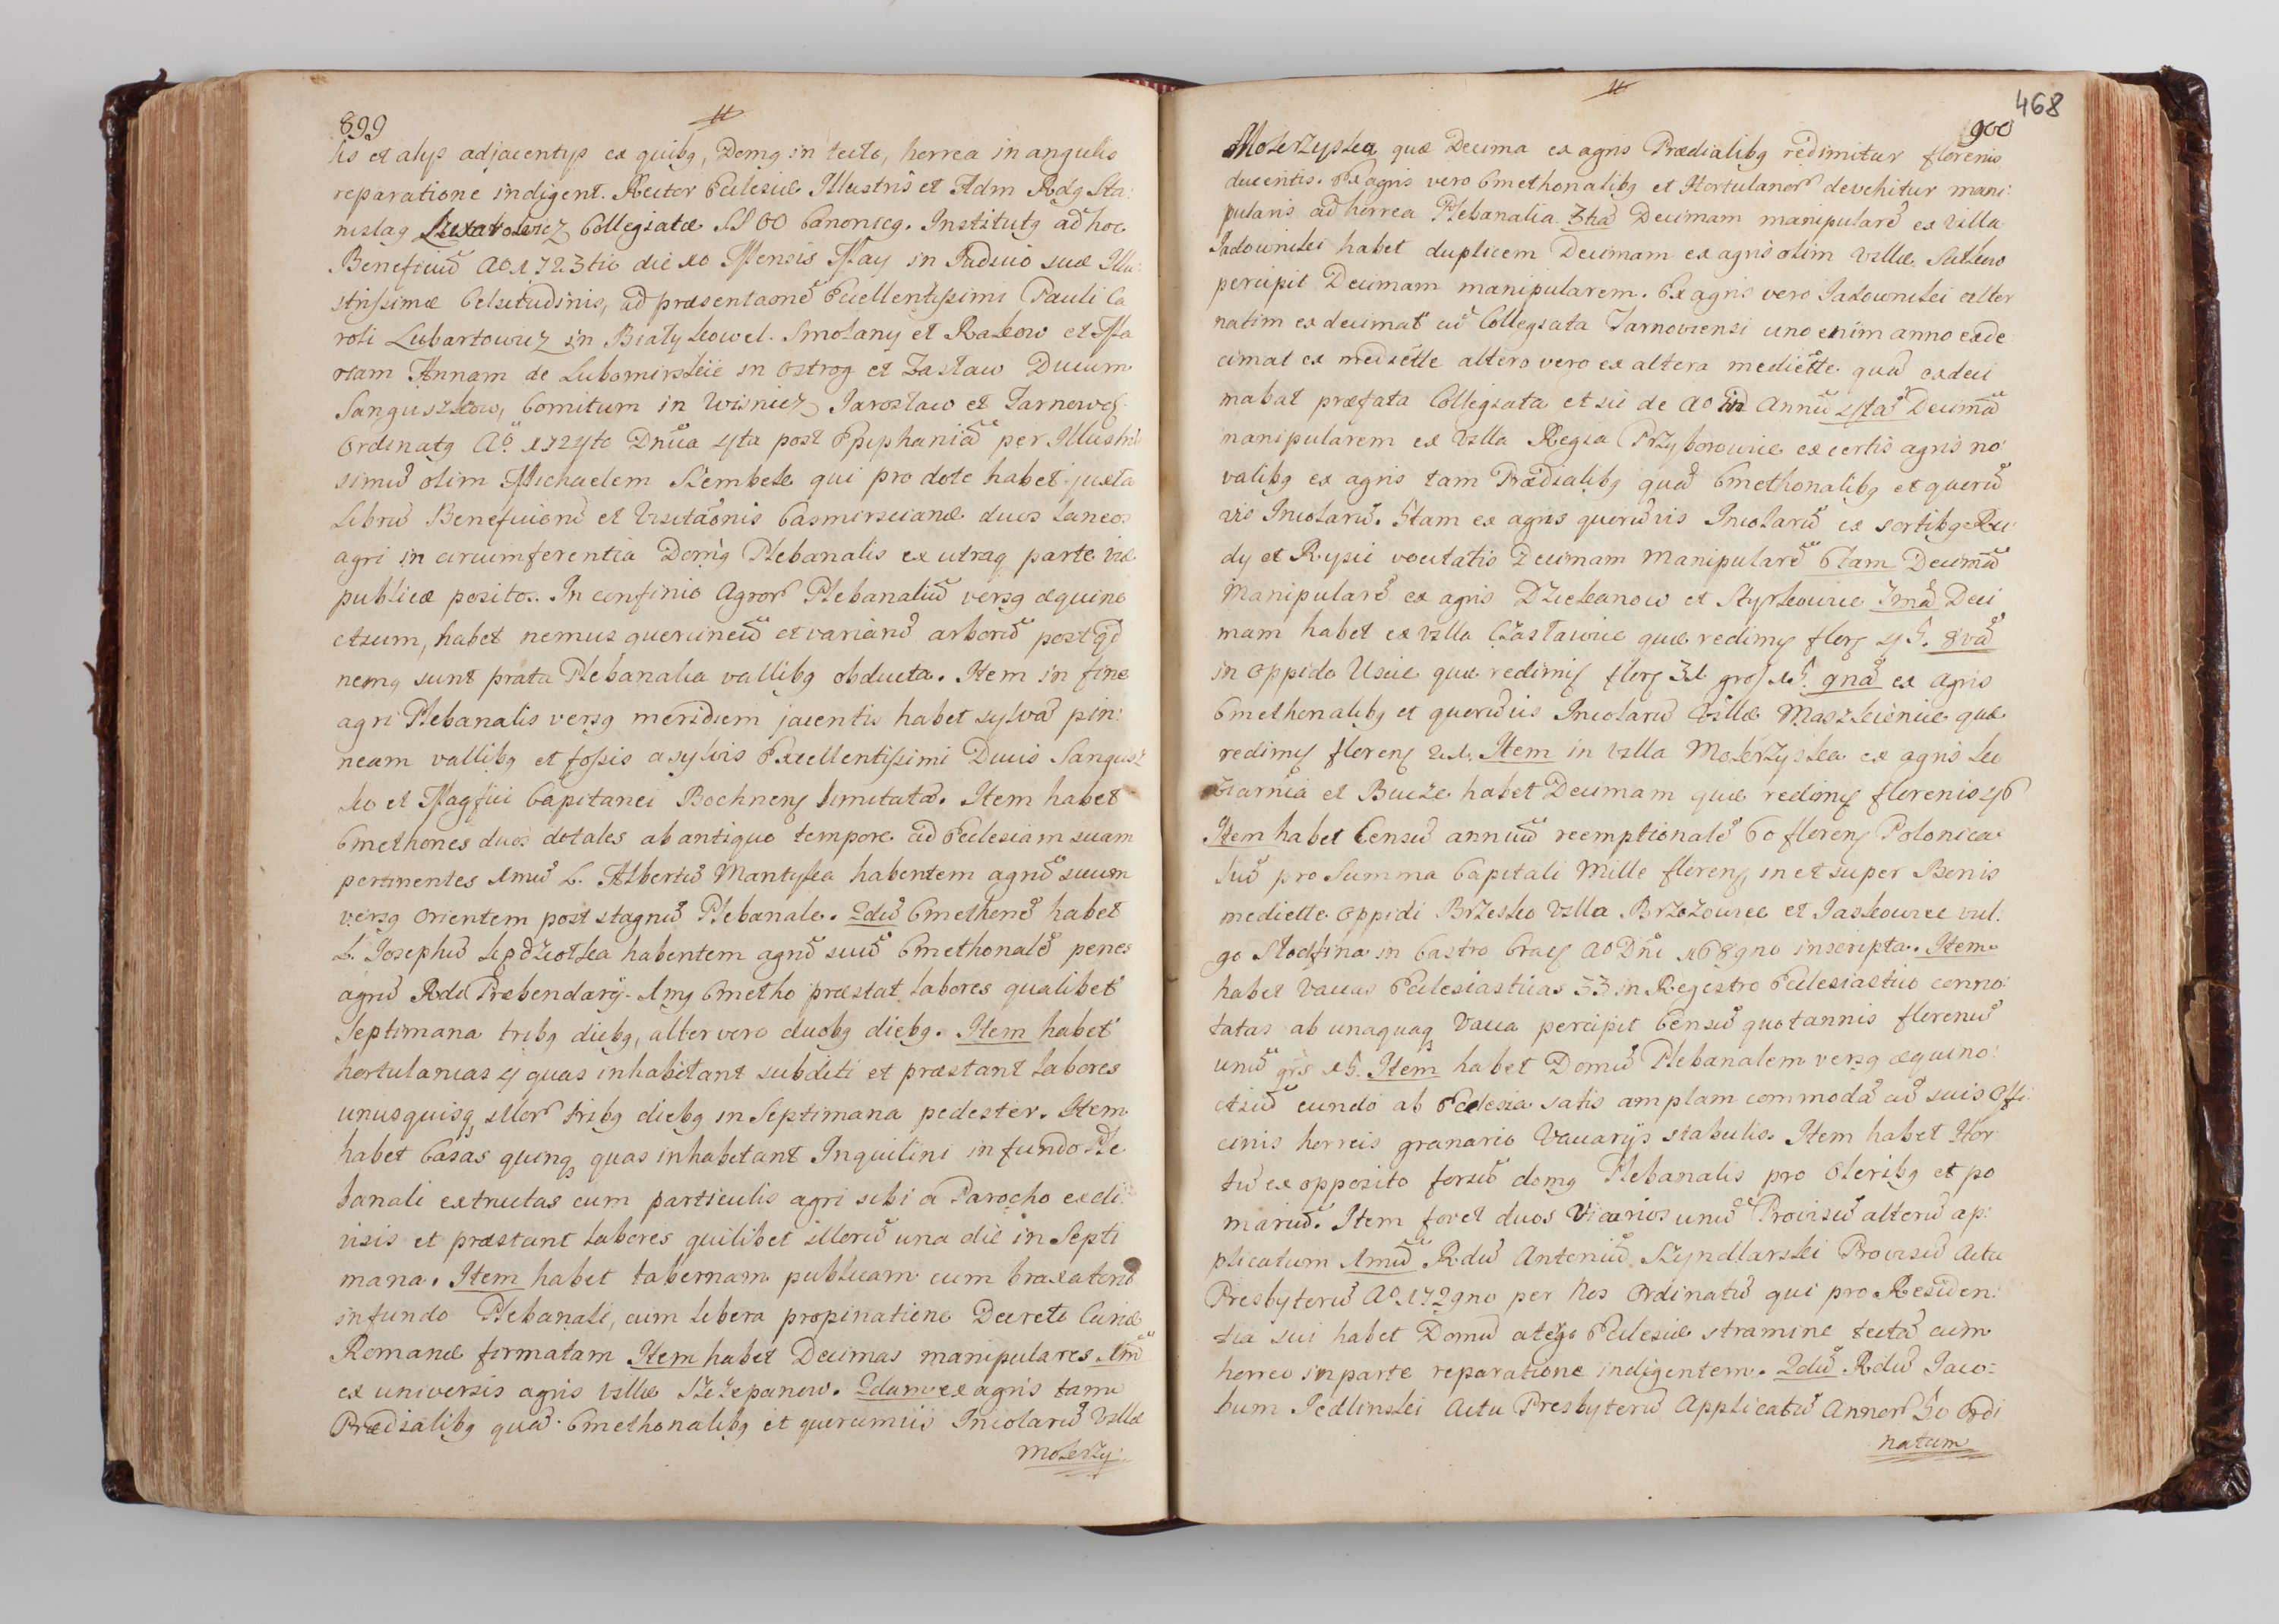 899
lis et alys adjacentys ex quibg, Domg in tecto, horrea in angulis
reparatione indigent. Rector Ecclesiæ Illustris et Adm Rdg Sta:
nislag Collegiatæ SS OO Canonicg. Institutg ad hoc
Beneficiũ A͠o 1723tio die 10 Mensis May in Radzivo suæ Illu:
strissimæ Celsitudinis, ad præsentaonẽ Excellentissimi Pauli Ca
roli Lubartowicz in Białykowel. Smolany et Rakow et Ma
riam Annam de Lubomirskie in Ostrog et Zasław Ducum
Sanguszkow, Comitum in Wisnicz, Jarosław et Tarnow
Ordinatg Aõ. 1724to Dnĩca 4ta post Epiphaniã per Illustris
simũ olim Michaelem Szembek qui pro dote habet juxta
Librũ Beneficiorũ et Visitaõnis Casmirscianæ duos laneos
agri in circumferentia Domg Plebanalis ex utraq parte viæ
publicæ positos. In confinio Agror Plebanaliũ versg æquino
ctium, habet nemus quercineũ et variarũ arborũ post qd
nemg sunt prata Plebanalia vallibg obducta. Item in fine
agri Plebanalis versg meridiem jacentis habet sylvã pin:
neam vallibg et fossis a sylvis Excellentissimi Ducis Sangusz
ko et Magfici Capitanei Bochneng limitatã. Item habet
Cmethones duos dotales ab antiquo tempore ad Ecclesiam suam
pertinentes 1mũ L. Albertũ Mantyka habentem agrũ suum
versg Orientem post stagnũ Plebanale. 2dũ Cmethonẽ habet
L. Josephũ habentem agrũ suũ Cmethonalẽ penes
agrũ Rdi Præbendary. 1mg Cmetho præstat labores qualibet
Septimana tribg diebg, alter vero duobg diebg. Item habet
hortulanias 4 quas inhabitant subditi et præstant labores
unusquisq illor tribg diebg in Septimana pedester. Item
habet Casas quinq quas inhabitant Inquilini in fundo Ple
banali extructas cum particulis agri sibi a Parocho exdi:
visis et præstant labores quilibet illorũ una die in Septi
mana. Item habet tabernam publicam cum braxatorio
in fundo Plebanali, cum libera propinatione Decreto Curiæ
Romanæ firmatam Item habet Decimas manipulares 1mã
ex universis agris villæ Szczepanow. 2dam ex agris tam
Prædialibg quã Cmethonalibg et quorumvis Incolarũ Villæ
Mokrzy:
468
900
Mokrzyska quæ Decima ex agris Prædialibg redimitur florenis
ducentis. Ex agris vero Cmethonalibg et Hortulanor devehitur mani:
pularis ad horrea Plebanalia. 3tiã Decimam manipularẽ ex villa
Jadowniki habet duplicem Decimam ex agris olim villæ Sutkow
percipit Decimam manipularem. Ex agris vero Jadowniki alter
natim exdecimat cũ Collegiata Tarnoviensi uno enim anno exde
cimat ex medietate altero vero ex altera medietate quã exdeci
mabat præfata Collegiata et sic de Ao in Annũ 4tã Decimã
manipularem ex Villa Regia Przyborowie ex certis agris no
valibg ex agris tam Prædialibg quã Cmethonalibg et quorũ
vis Incolarũ. 5tam ex agris quorũvis Incolarũ ex sortibg Ru
dy et Rysie vocitatis Decimam Manipularẽ 6tam Decimã
Manipularẽ ex agris Dziekanow et Styrkowiec 7mã Deci
mam habet ex villa Czasławice quæ redimg florg 45. 8vã
in oppido Uscie quæ redimig florg 31 gros 15. 9nã ex agris
Cmethonalibg et quorũvis Incolarũ Villæ Maszkienice quæ
redimg floreng 21. Item in villa Mokrzyska ex agris Ko
ziarnia et Bucze habet Decimam quæ redimg florenis 46
Item habet Censũ annuũ reemptionalẽ 60 floreng Polonica
liũ pro Summa Capitali Mille floreng, in et super Bonis
mediette oppidi Brzesko Villa Brzozowiec et Jaskowice vul:
go Słotfina in Castro Crac Ao Dni 1689no inscripta. Item
habet vaccas Ecclesiasticas 33 in Regestro Ecclesiastico conno:
tatas ab unaquaq Vacca percipit Censũ quotannis florenũ
unũ grs 15. Item habet Domũ Plebanalem versg æquino:
ctiũ eundo ab Ecclesia satis amplam commodã cũ suis Offi:
cinis horreis granario Vaccarys stabulis. Item habet Hor
tũ ex opposito forsũ domg Plebanalis pro Oleribg et po
mariũ. Item fovet duos Vicarios unũ Provisũ alterũ ap:
plicatum 1mũ Rdũ Antoniũ Szyndlarski Provisũ Actu
Presbyterũ Ao 1729no per Nos Ordinatũ qui pro Residen:
tia sui habet Domũ atego Ecclesiæ stramine tectã cum
horreo in parte reparatione indigentem. 2dũ Rdũ Jaco=
bum Jedlinski Actu Presbyterũ Applicatũ Annor 30 Ordi
natum